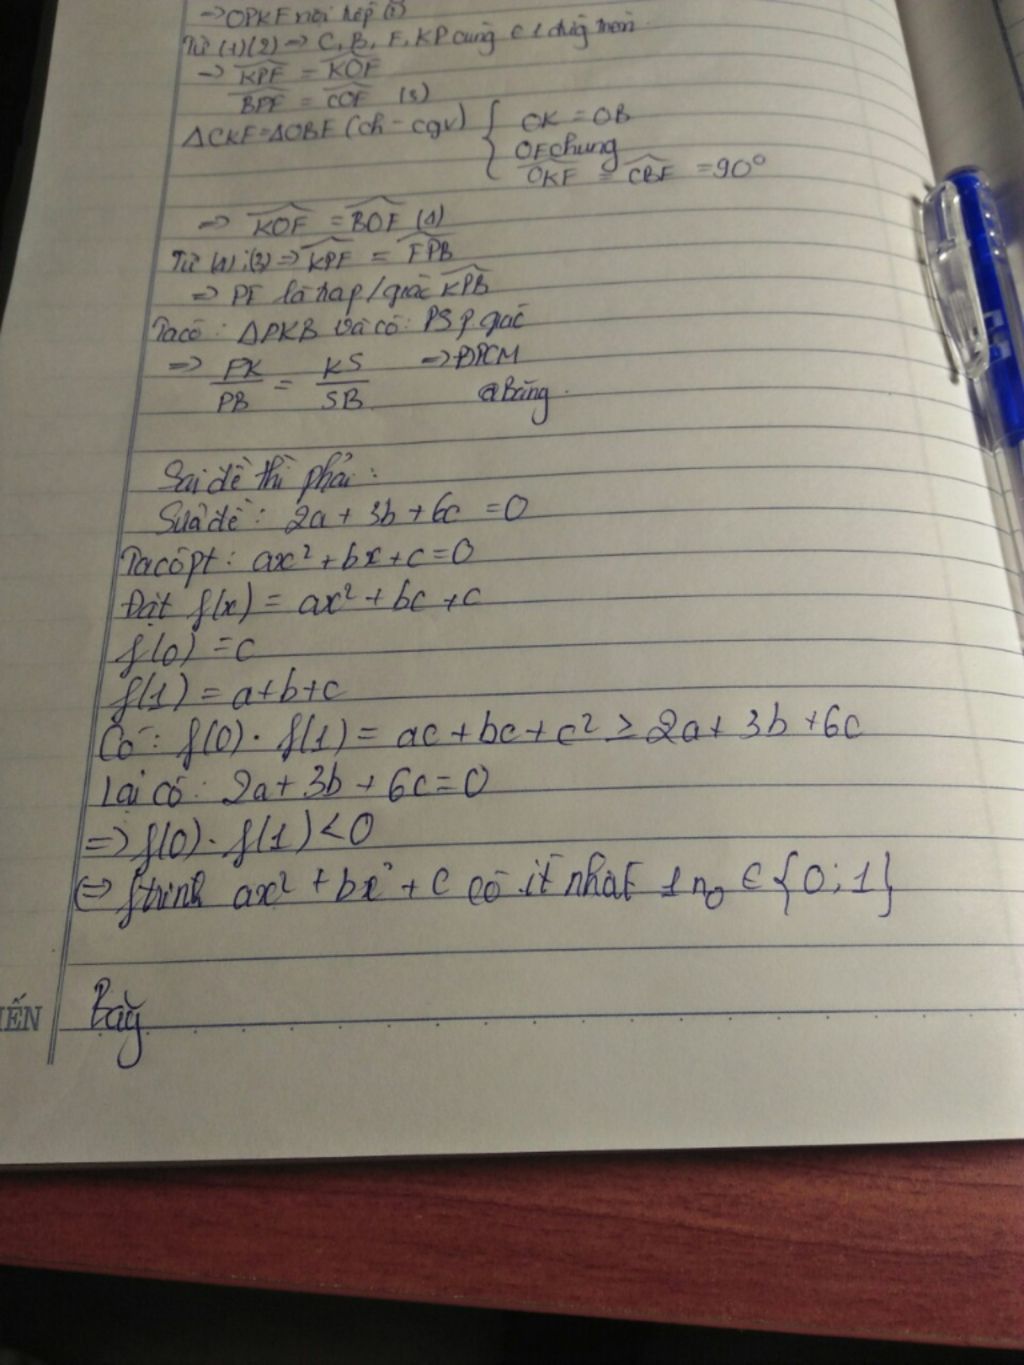 ⇒ OPKF nội tiếp (2)
Từ (1)(2) ⇒ C, B, F, K, P cùng ∈ 1 đường tròn
⇒ KPF = KOF
BPF = COF (3)
ΔCKF = ΔOBF (ch - cgv) { OK = OB
OF chung
OKF = CBF = 90°
⇒ KOF = BOF (4)
Từ (4);(3) ⇒ KPF = FPB
⇒ PF là p/giác KPB
Ta có: ΔPKB và có: PS p.giác
⇒ PK/PB = KS/SB ⇒ ĐPCM
@Băng.
Sai đề thì phải:
Sửa đề: 2a + 3b + 6c = 0
Ta có pt: ax² + bx + c = 0
Đặt f(x) = ax² + bc + c
f(0) = c
f(1) = a+b+c
Có: f(0) . f(1) = ac + bc + c² ≥ 2a + 3b + 6c
Lại có: 2a + 3b + 6c = 0
⇒ f(0) . f(1) < 0
⇒ ftrình ax² + bx + c có ít nhất 1 no ∈ {0;1}
IẾN
Băg